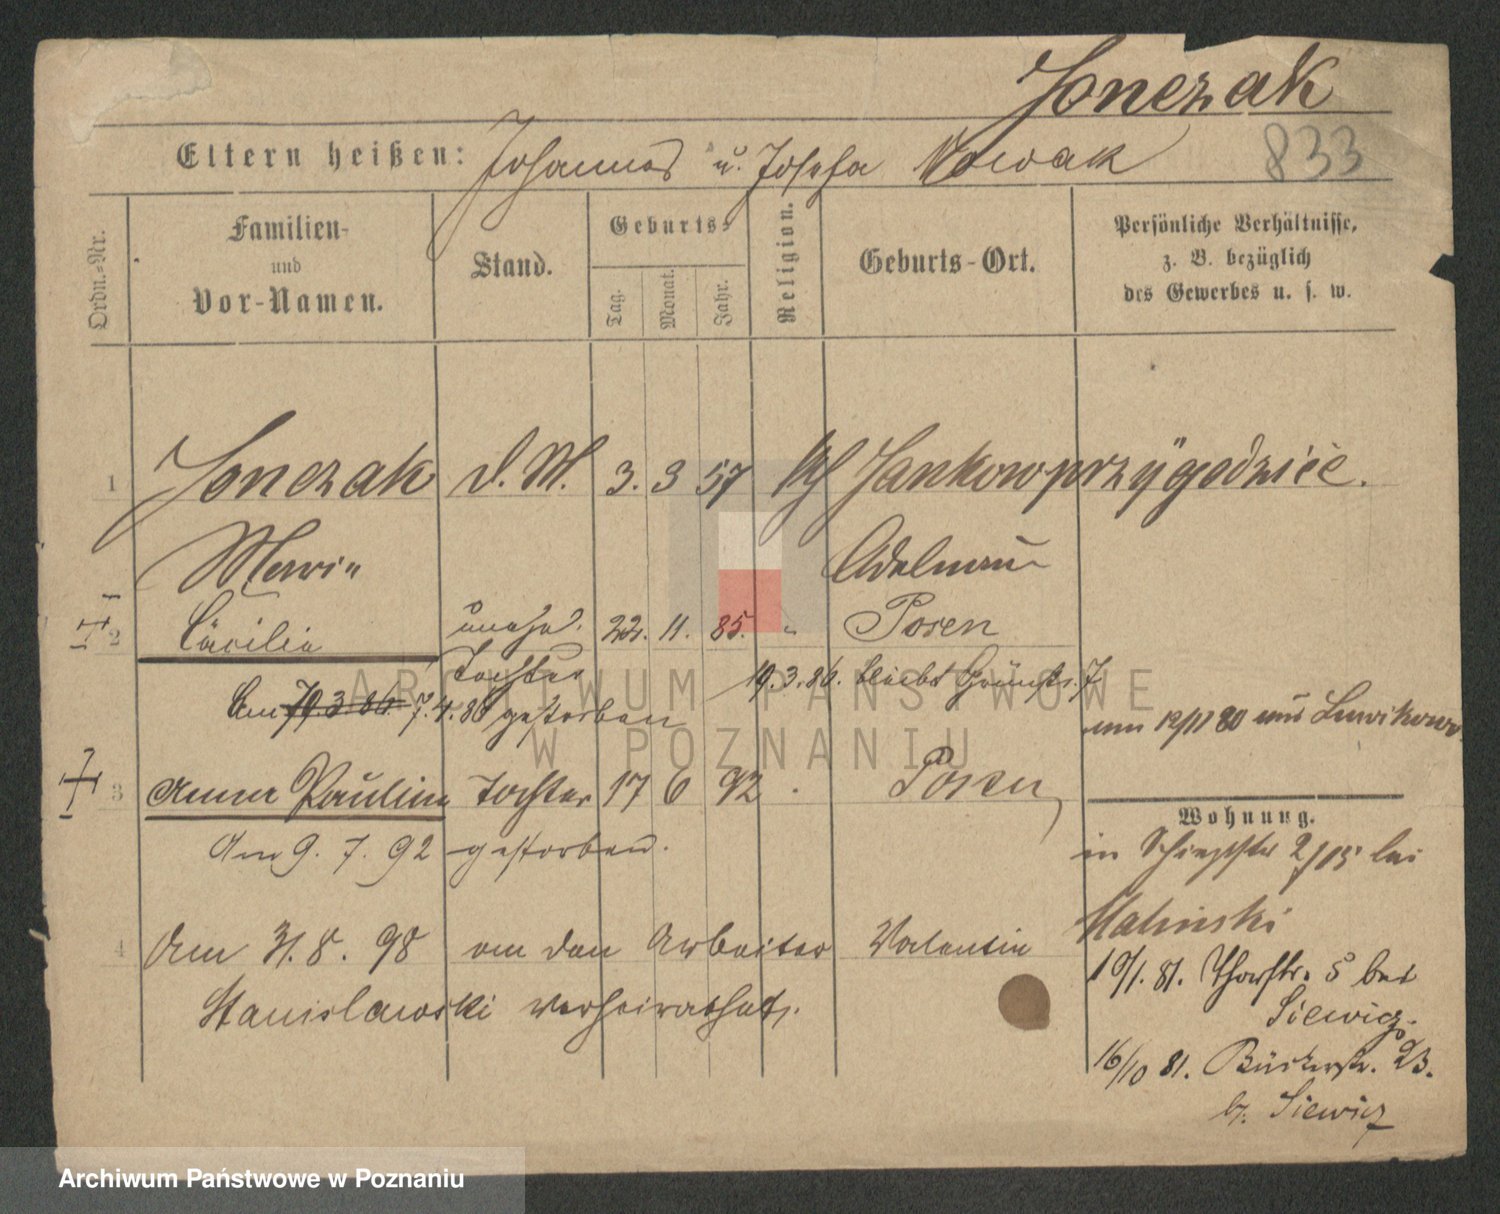 Jonczak
Eltern heißen: Johannes u. Josefa Nowak
833
Ordn.-Nr.
Familien-
und
Vor-Namen.
Stand.
Geburts-
Tag.
Monat.
Jahr.
Religion.
Geburts-Ort.
Persönliche Verhältnisse,
z. B. bezüglich
des Gewerbes u. s. w.
1 Jonczak d. M. 3. 3 57 kth Jankow przygodzice.
Marie Adelnau
2 Cäcilie unehel. 22. 11. 85. " Posen
Tochter 19.3.86. bleibt Grünstr. 7
Am 19.3.86. 7.4.86 gestorben
von 12/11 80 aus Ludwikowo
3 Anna Pauline Tochter 17 6 92 " Posen
Wohnung.
Am 9. 7. 92 gestorben.
2/15 bei
Malinski
4 Am 31. 8. 98 an den Arbeiter Valentin
19/1. 81. Thorstr. 5 bei
Siewicz.
Stanislawski verheirathet.
16/10 81. Bäckerstr. 23.
b. Siewicz
ARCHIWUM PAŃSTWOWE
W POZNANIU
Archiwum Państwowe w Poznaniu